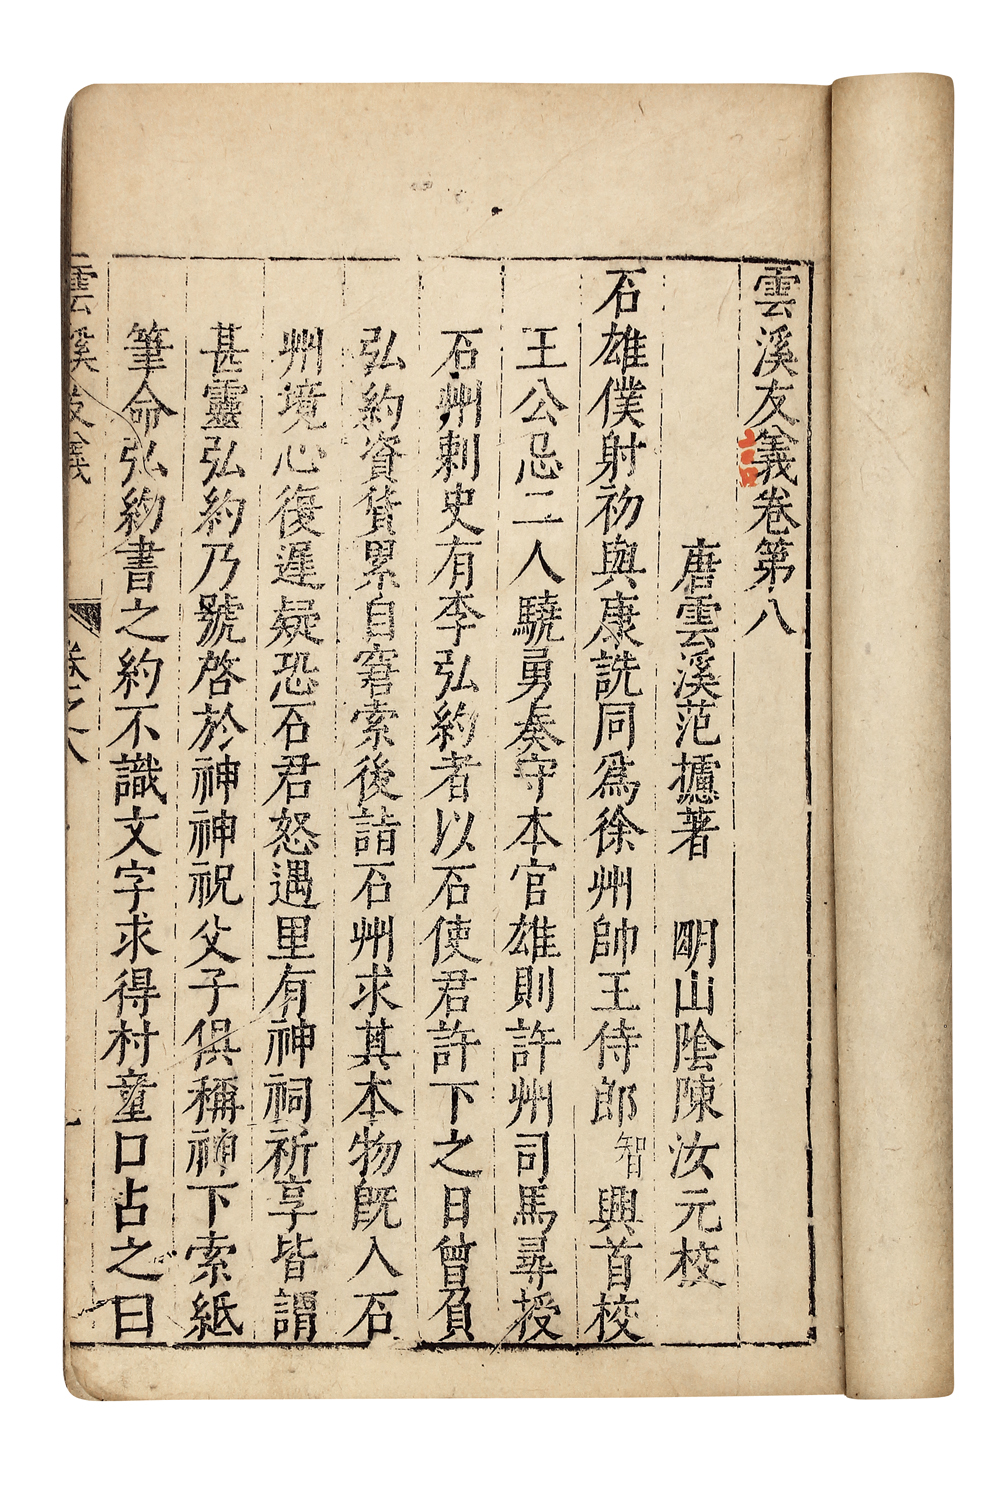 雲溪友議卷第八
唐雲溪范攄著 明山陰陳汝元校
石雄僕射初與康詵同爲徐州帥王侍郎智興首校
王公忌二人驍勇奏守本官雄則許州司馬尋授
石州剌史有李弘約者以石使君許下之日曾負
弘約資貨累自窘索後詣石州求其本物旣入石
州境心復遲疑恐石君怒遇里有神祠祈享皆謂
甚靈弘約乃號啓於神神祝父子俱稱神下索紙
筆命弘約書之約不識文字求得村童口占之曰
雲溪友義 卷之八